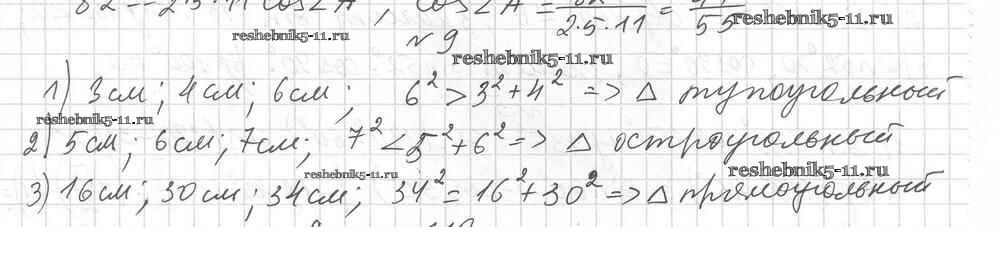 82 = -2·5·11 cos∠A, cos∠A = 
2·5·11 = 55
reshebnik5-11.ru
reshebnik5-11.ru
№9
reshebnik5-11.ru
1) 3см; 4см; 6см; 6² > 3² + 4² => △ тупоугольный
reshebnik5-11.ru
2) 5см; 6см; 7см; 7² < 5² + 6² => △ остроугольный
reshebnik5-11.ru
reshebnik5-11.ru
3) 16см; 30см; 34см; 34² = 16² + 30² => △ прямоугольный